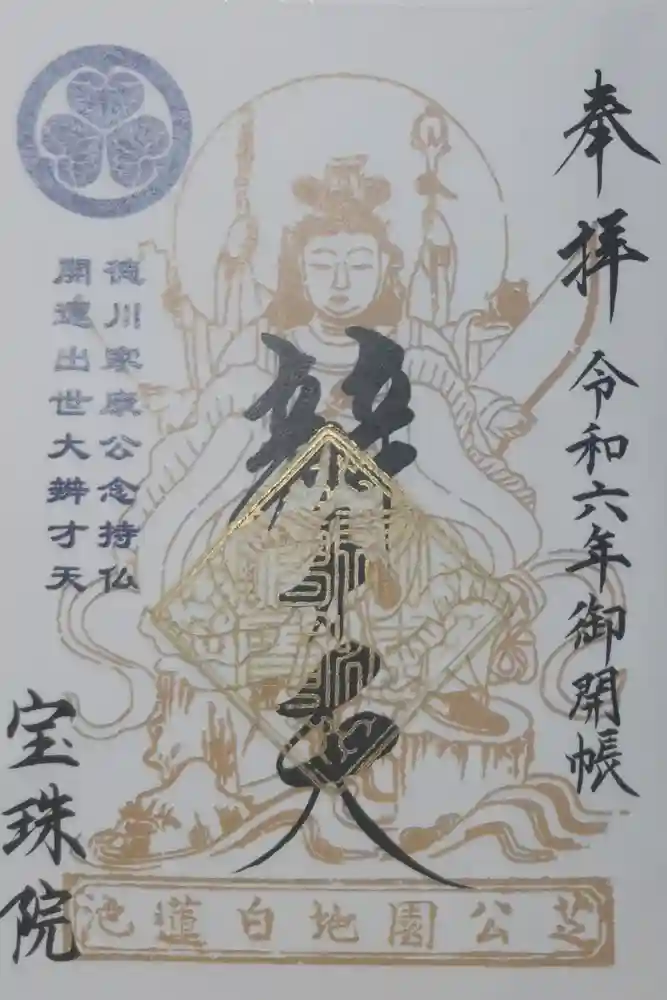 奉拝 令和六年御開帳
辨才天
徳川家康公念持仏
開運出世大辨才天
宝珠院
芝公園地白蓮池